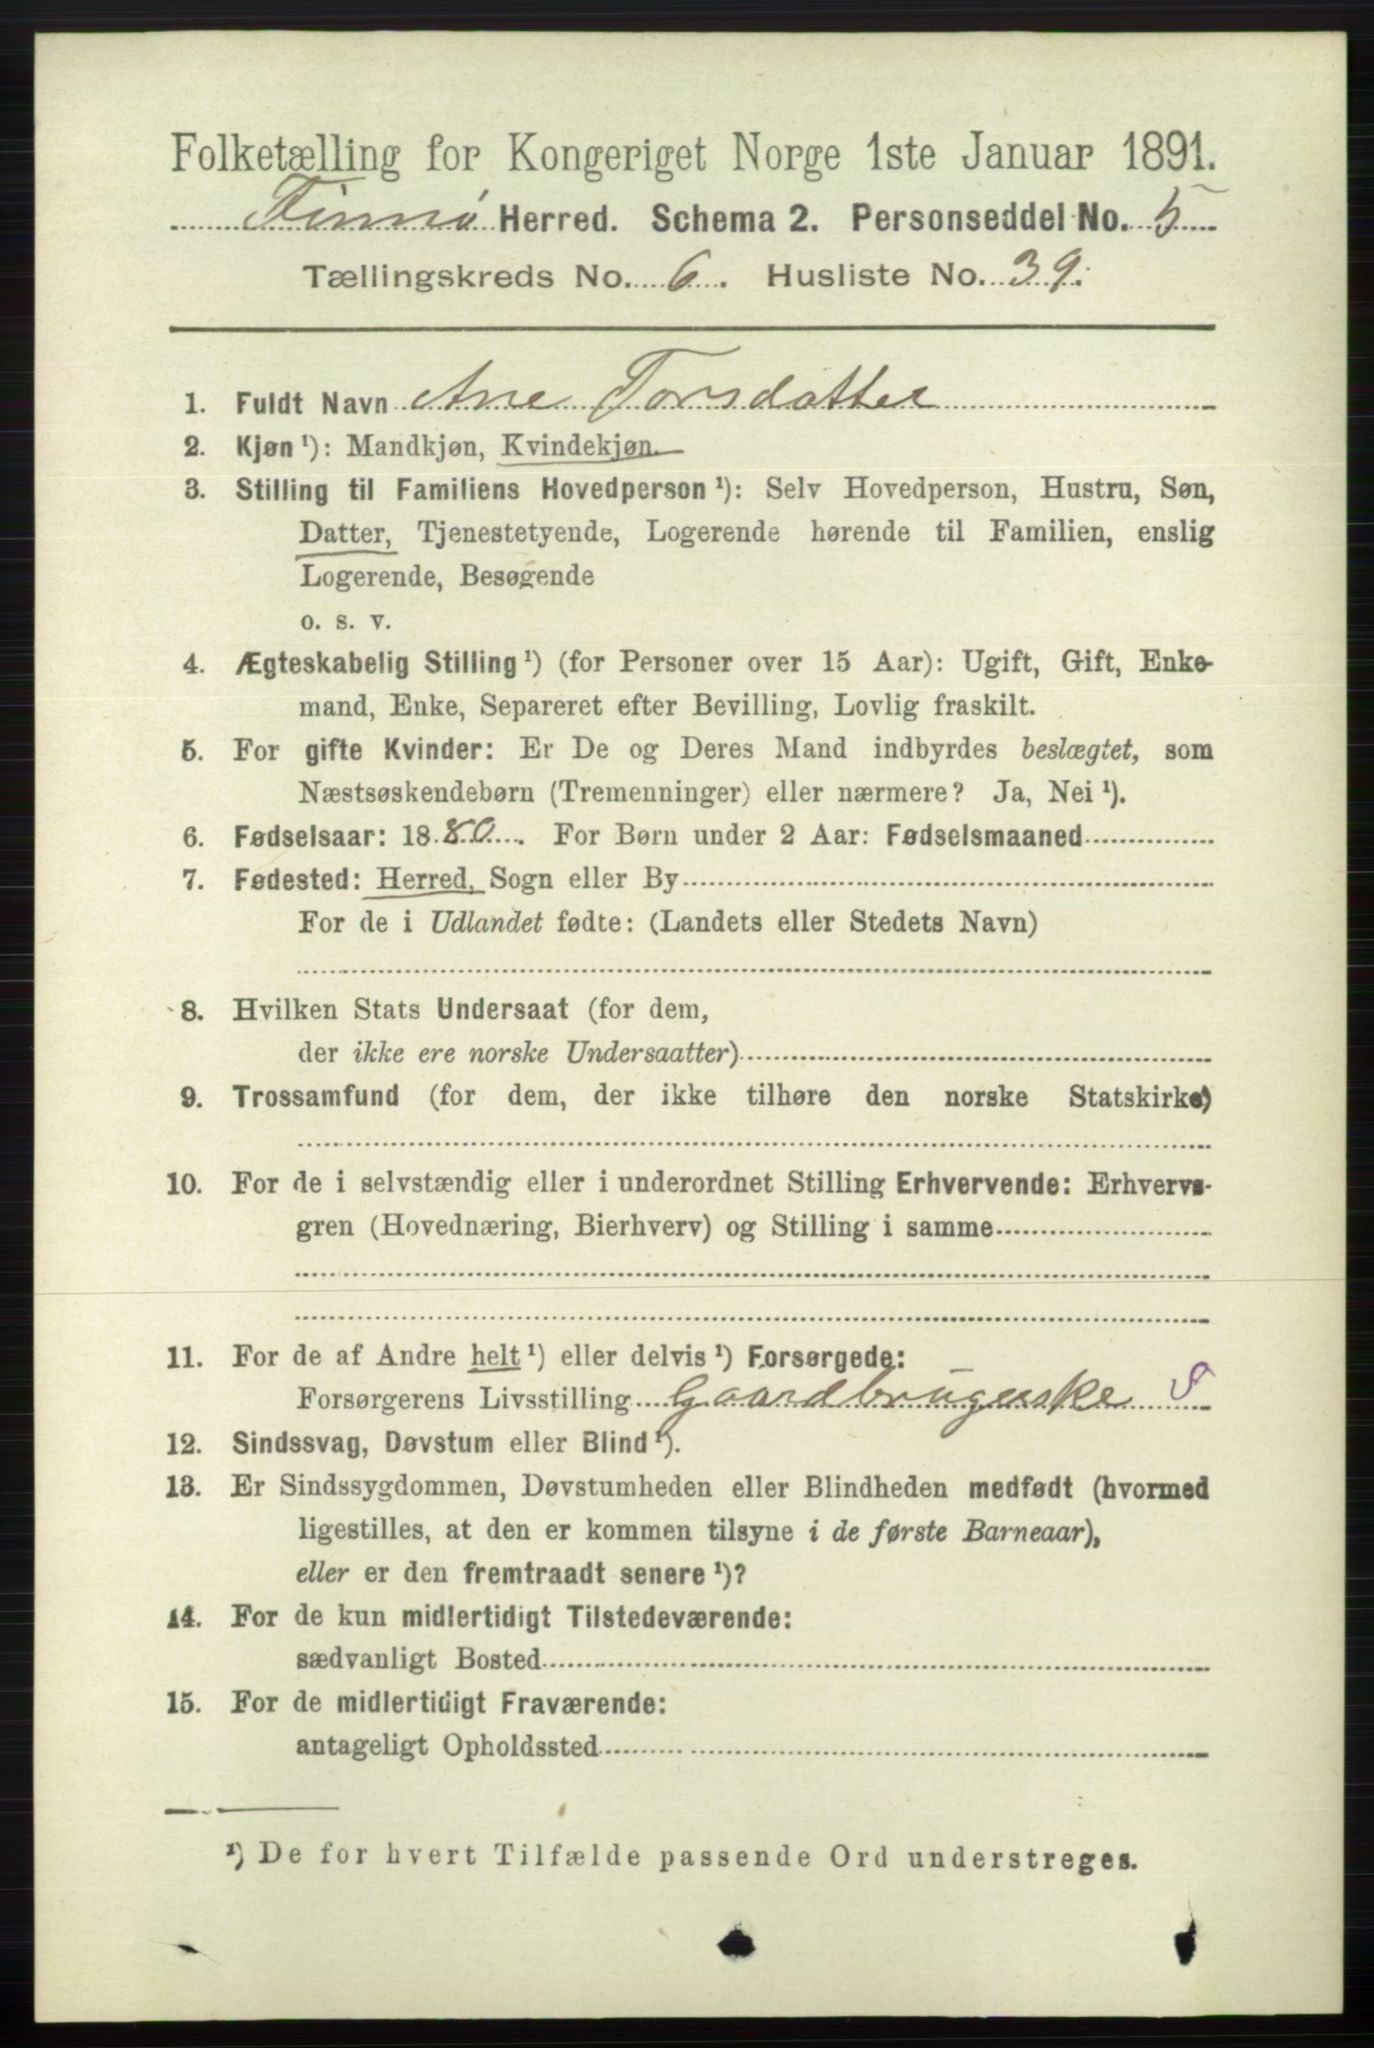 Folketælling for Kongeriget Norge 1ste Januar 1891.
Finnø Herred. Schema 2. Personseddel No. 5
Tællingskreds No. 6. Husliste No. 39.
1. Fuldt Navn Ane Torsdatter
2. Kjøn ¹): Mandkjøn, Kvindekjøn.
3. Stilling til Familiens Hovedperson ¹): Selv Hovedperson, Hustru, Søn,
Datter, Tjenestetyende, Logerende hørende til Familien, enslig
Logerende, Besøgende
o. s. v.
4. Ægteskabelig Stilling ¹) (for Personer over 15 Aar): Ugift, Gift, Enke-
mand, Enke, Separeret efter Bevilling, Lovlig fraskilt.
5. For gifte Kvinder: Er De og Deres Mand indbyrdes beslægtet, som
Næstsøskendebørn (Tremenninger) eller nærmere? Ja, Nei ¹).
6. Fødselsaar: 1880. For Børn under 2 Aar: Fødselsmaaned
7. Fødested: Herred, Sogn eller By
For de i Udlandet fødte: (Landets eller Stedets Navn)
8. Hvilken Stats Undersaat (for dem,
der ikke ere norske Undersaatter)
9. Trossamfund (for dem, der ikke tilhøre den norske Statskirke)
10. For de i selvstændig eller i underordnet Stilling Erhvervende: Erhvervs-
gren (Hovednæring, Bierhverv) og Stilling i samme
11. For de af Andre helt ¹) eller delvis ¹) Forsørgede:
Forsørgerens Livsstilling Gaardbrugerske S
12. Sindssvag, Døvstum eller Blind ¹).
13. Er Sindssygdommen, Døvstumheden eller Blindheden medfødt (hvormed
ligestilles, at den er kommen tilsyne i de første Barneaar),
eller er den fremtraadt senere ¹)?
14. For de kun midlertidigt Tilstedeværende:
sædvanligt Bosted
15. For de midlertidigt Fraværende:
antageligt Opholdssted
¹) De for hvert Tilfælde passende Ord understreges.